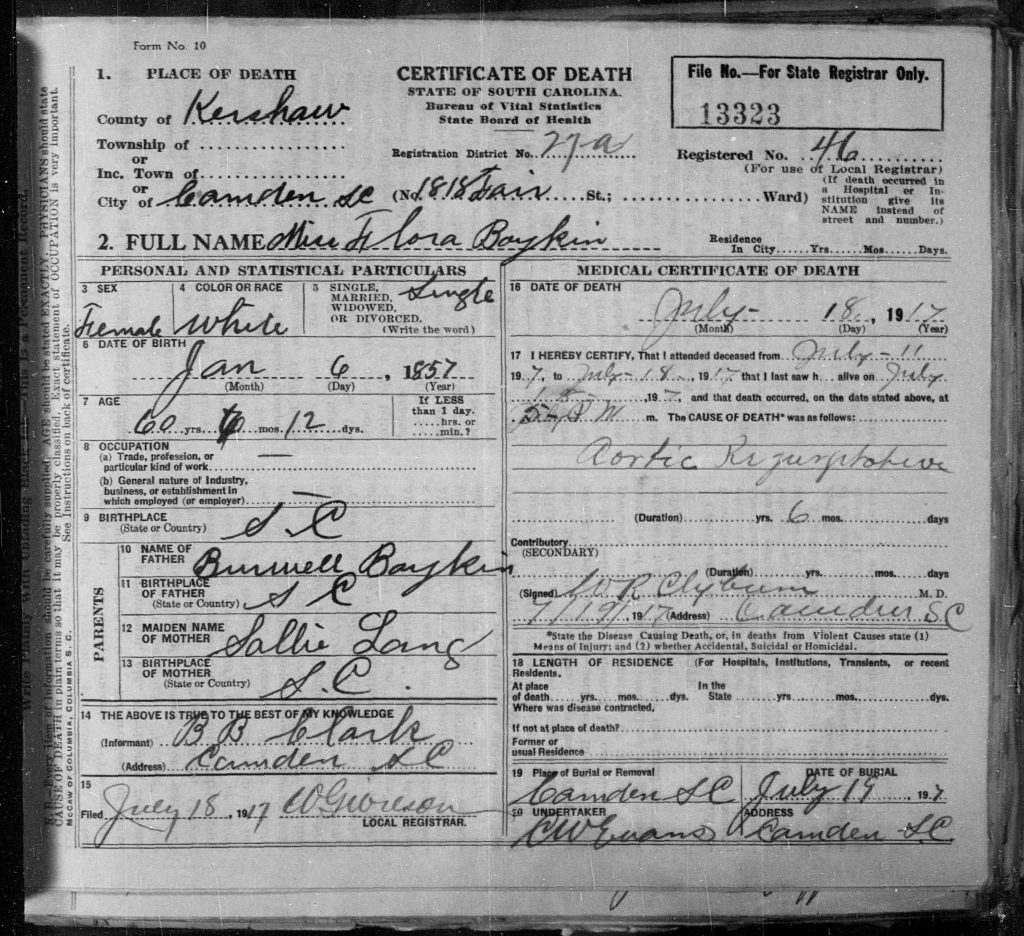 Form No. 10
1. PLACE OF DEATH
County of Kershaw
Township of
or
Inc. Town of
or
City of Camden SC
CERTIFICATE OF DEATH
STATE OF SOUTH CAROLINA.
Bureau of Vital Statistics
State Board of Health
Registration District No. 27-a
(No. 1818 Fair St.; Ward)
File No.—For State Registrar Only.
13323
Registered No. 46
(For use of Local Registrar)
(If death occurred in
a Hospital or In-
stitution give its
NAME instead of
street and number.)
2. FULL NAME Miss Flora Boykin
Residence
In City Yrs. Mos. Days.
PERSONAL AND STATISTICAL PARTICULARS
3 SEX
Female
4 COLOR OR RACE
White
5 SINGLE,
MARRIED,
WIDOWED,
OR DIVORCED.
(Write the word)
Single
6 DATE OF BIRTH
Jan 6, 1857
(Month) (Day) (Year)
7 AGE
60 yrs. 6 mos. 12 dys.
If LESS
than 1 day.
hrs. or
min.?
8 OCCUPATION
(a) Trade, profession, or
particular kind of work —
(b) General nature of Industry,
business, or establishment in
which employed (or employer) —
9 BIRTHPLACE
(State or Country) S. C
PARENTS
10 NAME OF
FATHER Burwell Boykin
11 BIRTHPLACE
OF FATHER
(State or Country) S C
12 MAIDEN NAME
OF MOTHER Sallie Lang
13 BIRTHPLACE
OF MOTHER
(State or Country) S. C.
14 THE ABOVE IS TRUE TO THE BEST OF MY KNOWLEDGE
(Informant) B B Clark
(Address) Camden S C
15
Filed July 18, 1917
LOCAL REGISTRAR.
MEDICAL CERTIFICATE OF DEATH
16 DATE OF DEATH
July - 18, 1917
(Month) (Day) (Year)
17 I HEREBY CERTIFY, That I attended deceased from July - 11
1917, to July - 18, 1917 that I last saw h alive on July
18, 1917 and that death occurred, on the date stated above, at
P M m. The CAUSE OF DEATH* was as follows:
Aortic
(Duration) yrs. 6 mos. days
Contributory
(SECONDARY)
(Duration) yrs. mos. days
(Signed) W R Clyburn M. D.
7/19/, 1917 (Address) Camden SC
*State the Disease Causing Death, or, in deaths from Violent Causes state (1)
Means of Injury: and (2) whether Accidental, Suicidal or Homicidal.
18 LENGTH OF RESIDENCE (For Hospitals, Institutions, Transients, or recent
Residents.
At place In the
of death yrs. mos. dys. State yrs. mos. dys.
Where was disease contracted,
If not at place of death?
Former or
usual Residence
19 Place of Burial or Removal DATE OF BURIAL
Camden SC July 19, 1917
20 UNDERTAKER ADDRESS
C W Evans Camden S. C
N. B.—Every item of Information should be carefully supplied. AGE should be stated EXACTLY. PHYSICIANS should state
CAUSE OF DEATH in plain terms so that it may be properly classified. Exact statement of OCCUPATION is very important.
See Instructions on back of certificate.
McCAW OF COLUMBIA, COLUMBIA S. C.